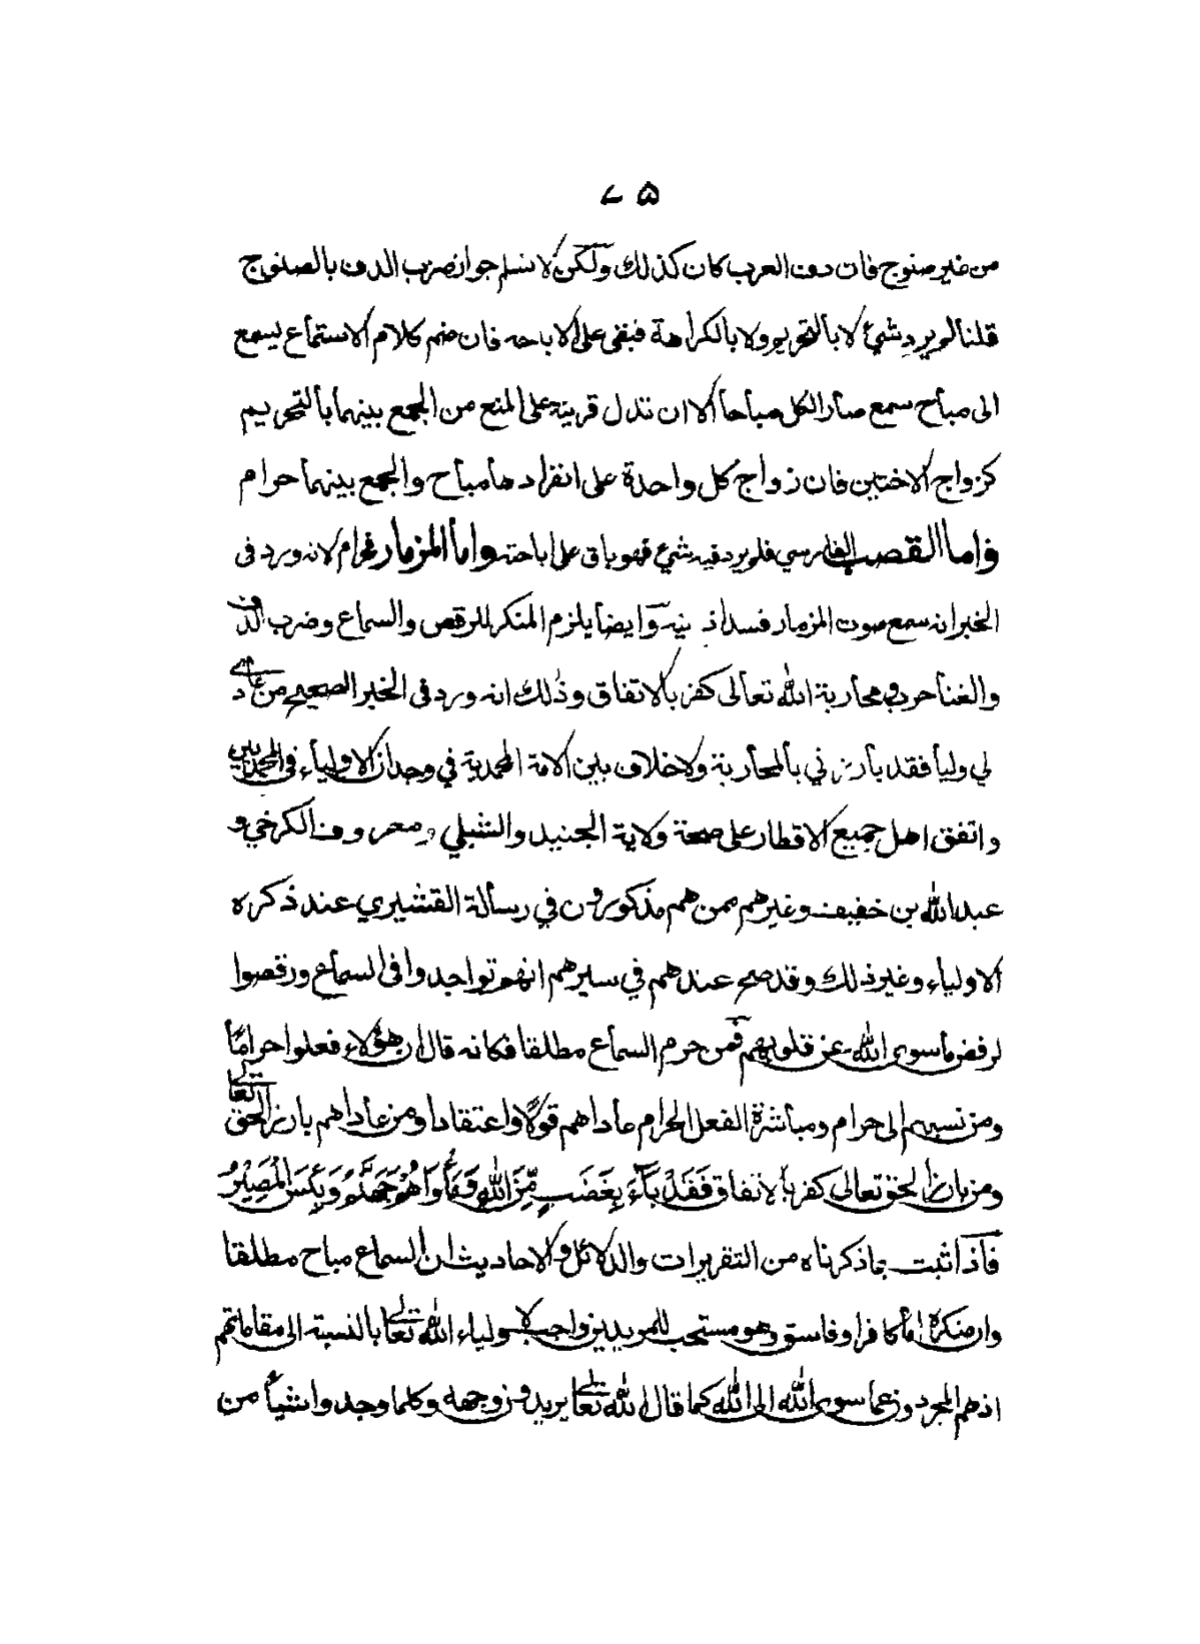 ٧٥
من غير صنوج فان دف العرب كان كذلك ولكن لا نسلم جواز ضرب الدف بالصنوج
قلنا لم يرد شئ لا بالتحريم ولا بالكراهة فبقى على الاباحه فان ضم كلام الاستماع ليسمع
الى مباح سمع صار الكل مباحا الا ان تدل قرينة على المنع من الجمع بينهما بالتحريم
كزواج الاختين فان زواج كل واحدة على انفرادها مباح والجمع بينهما حرام
واما القصب الفارسي فلم يرد فيه شئ فهو باق على اباحته واما المزمار فحرام لانه ورد فى
الخبر انه سمع صوت المزمار فسد اذنيه وايضا يلزم المنكر للرقص والسماع وضرب الدف
والغنا حرب ومحاربة الله تعالى كفر بالاتفاق وذلك انه ورد فى الخبر الصحيح من عادى
لي وليا فقد بارزني بالمحاربة ولا خلاف بين الامة المحمدية في وجدان الاولياء فى المحمديين
واتفق اهل جميع الاقطار على صحة ولاية الجنيد والشبلي ومعروف الكرخي و
عبدالله بن خفيف وغيرهم ممن هم مذكورون في رسالة القشيري عند ذكره
الاولياء وغير ذلك وقد صح عندهم في سيرهم انهم تواجدوا فى السماع ورقصوا
لرفض ماسوى الله عن قلوبهم فمن حرم السماع مطلقا فكانه قال ان هؤلاء فعلوا حراما
ومن نسبهم الى حرام ومباشرة الفعل الحرام عاداهم قولا واعتقادا ومن عاداهم بارز الحق تعالى
ومن بارز الحق تعالى كفر بالاتفاق فَقَدْ بَآءَ بِغَضَبٍ مِّنَ اللهِ وَمَأْوَاهُ جَهَنَّمُ وَبِئْسَ الْمَصِيْرُ
فاذا ثبت بما ذكرناه من التقريرات والدلائل والاحاديث ان السماع مباح مطلقا
وان منكره اما كافر او فاسق وهو مستحب للمريدين واجب لاولياء الله تعالى بالنسبة الى مقاماتهم
اذ هم المجردون عما سوى الله الى الله كما قال الله تعالى يريدون وجهه وكلما وجدوا شيأ من